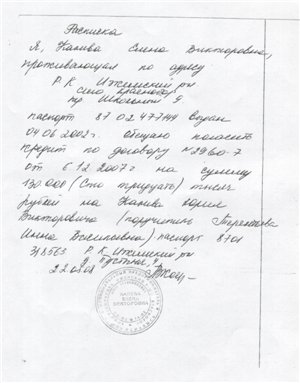 Расписка
Я, Канева Елена Викторовна,
проживающая по адресу
Р. К Ижемский р-н
село Краснобор
пер Школьный 9
паспорт 87 02 477144 выдан
04 06 2002г. обещаю погасить
кредит по договору № 2960-7
от 6 12 2007г на сумму
130.000 (Сто тридцать) тысяч
рублей на Канева Юрия
Викторовича (поручитель Терентьева
Инна Васильевна) паспорт 8701
318563 Р. К Ижемский р-н
22 08 08
КАНЕВА
ЕЛЕНА
ВИКТОРОВНА